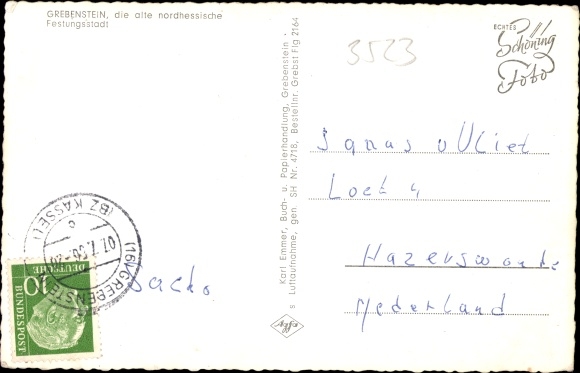 GREBENSTEIN, die alte nordhessische
Festungsstadt
3523
ECHTES
Schöning
Foto
Karl Emmer, Buch- u. Papierhandlung, Grebenstein ·
s Luftaufnahme, gen. SH Nr. 4718, Bestellnr. Grebst Flg 2164
v Vliet
Loet 4
Hazerswoude
Nederland
Jacko
(16) GREBENSTEIN
(BZ KASSEL)
c
10
DEUTSCHE
BUNDESPOST
Agfa